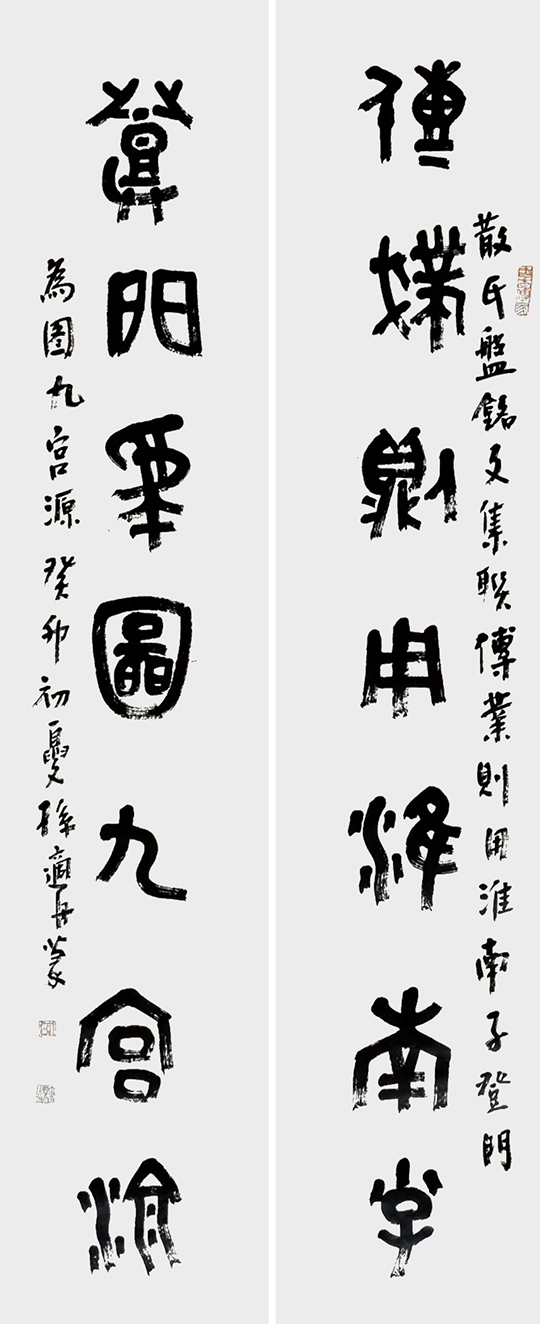 散氏盤銘文集聯傳業則用淮南子登門
傳業則用淮南子
登門為圖九宮源
為圖九宮源癸卯初夏孫適